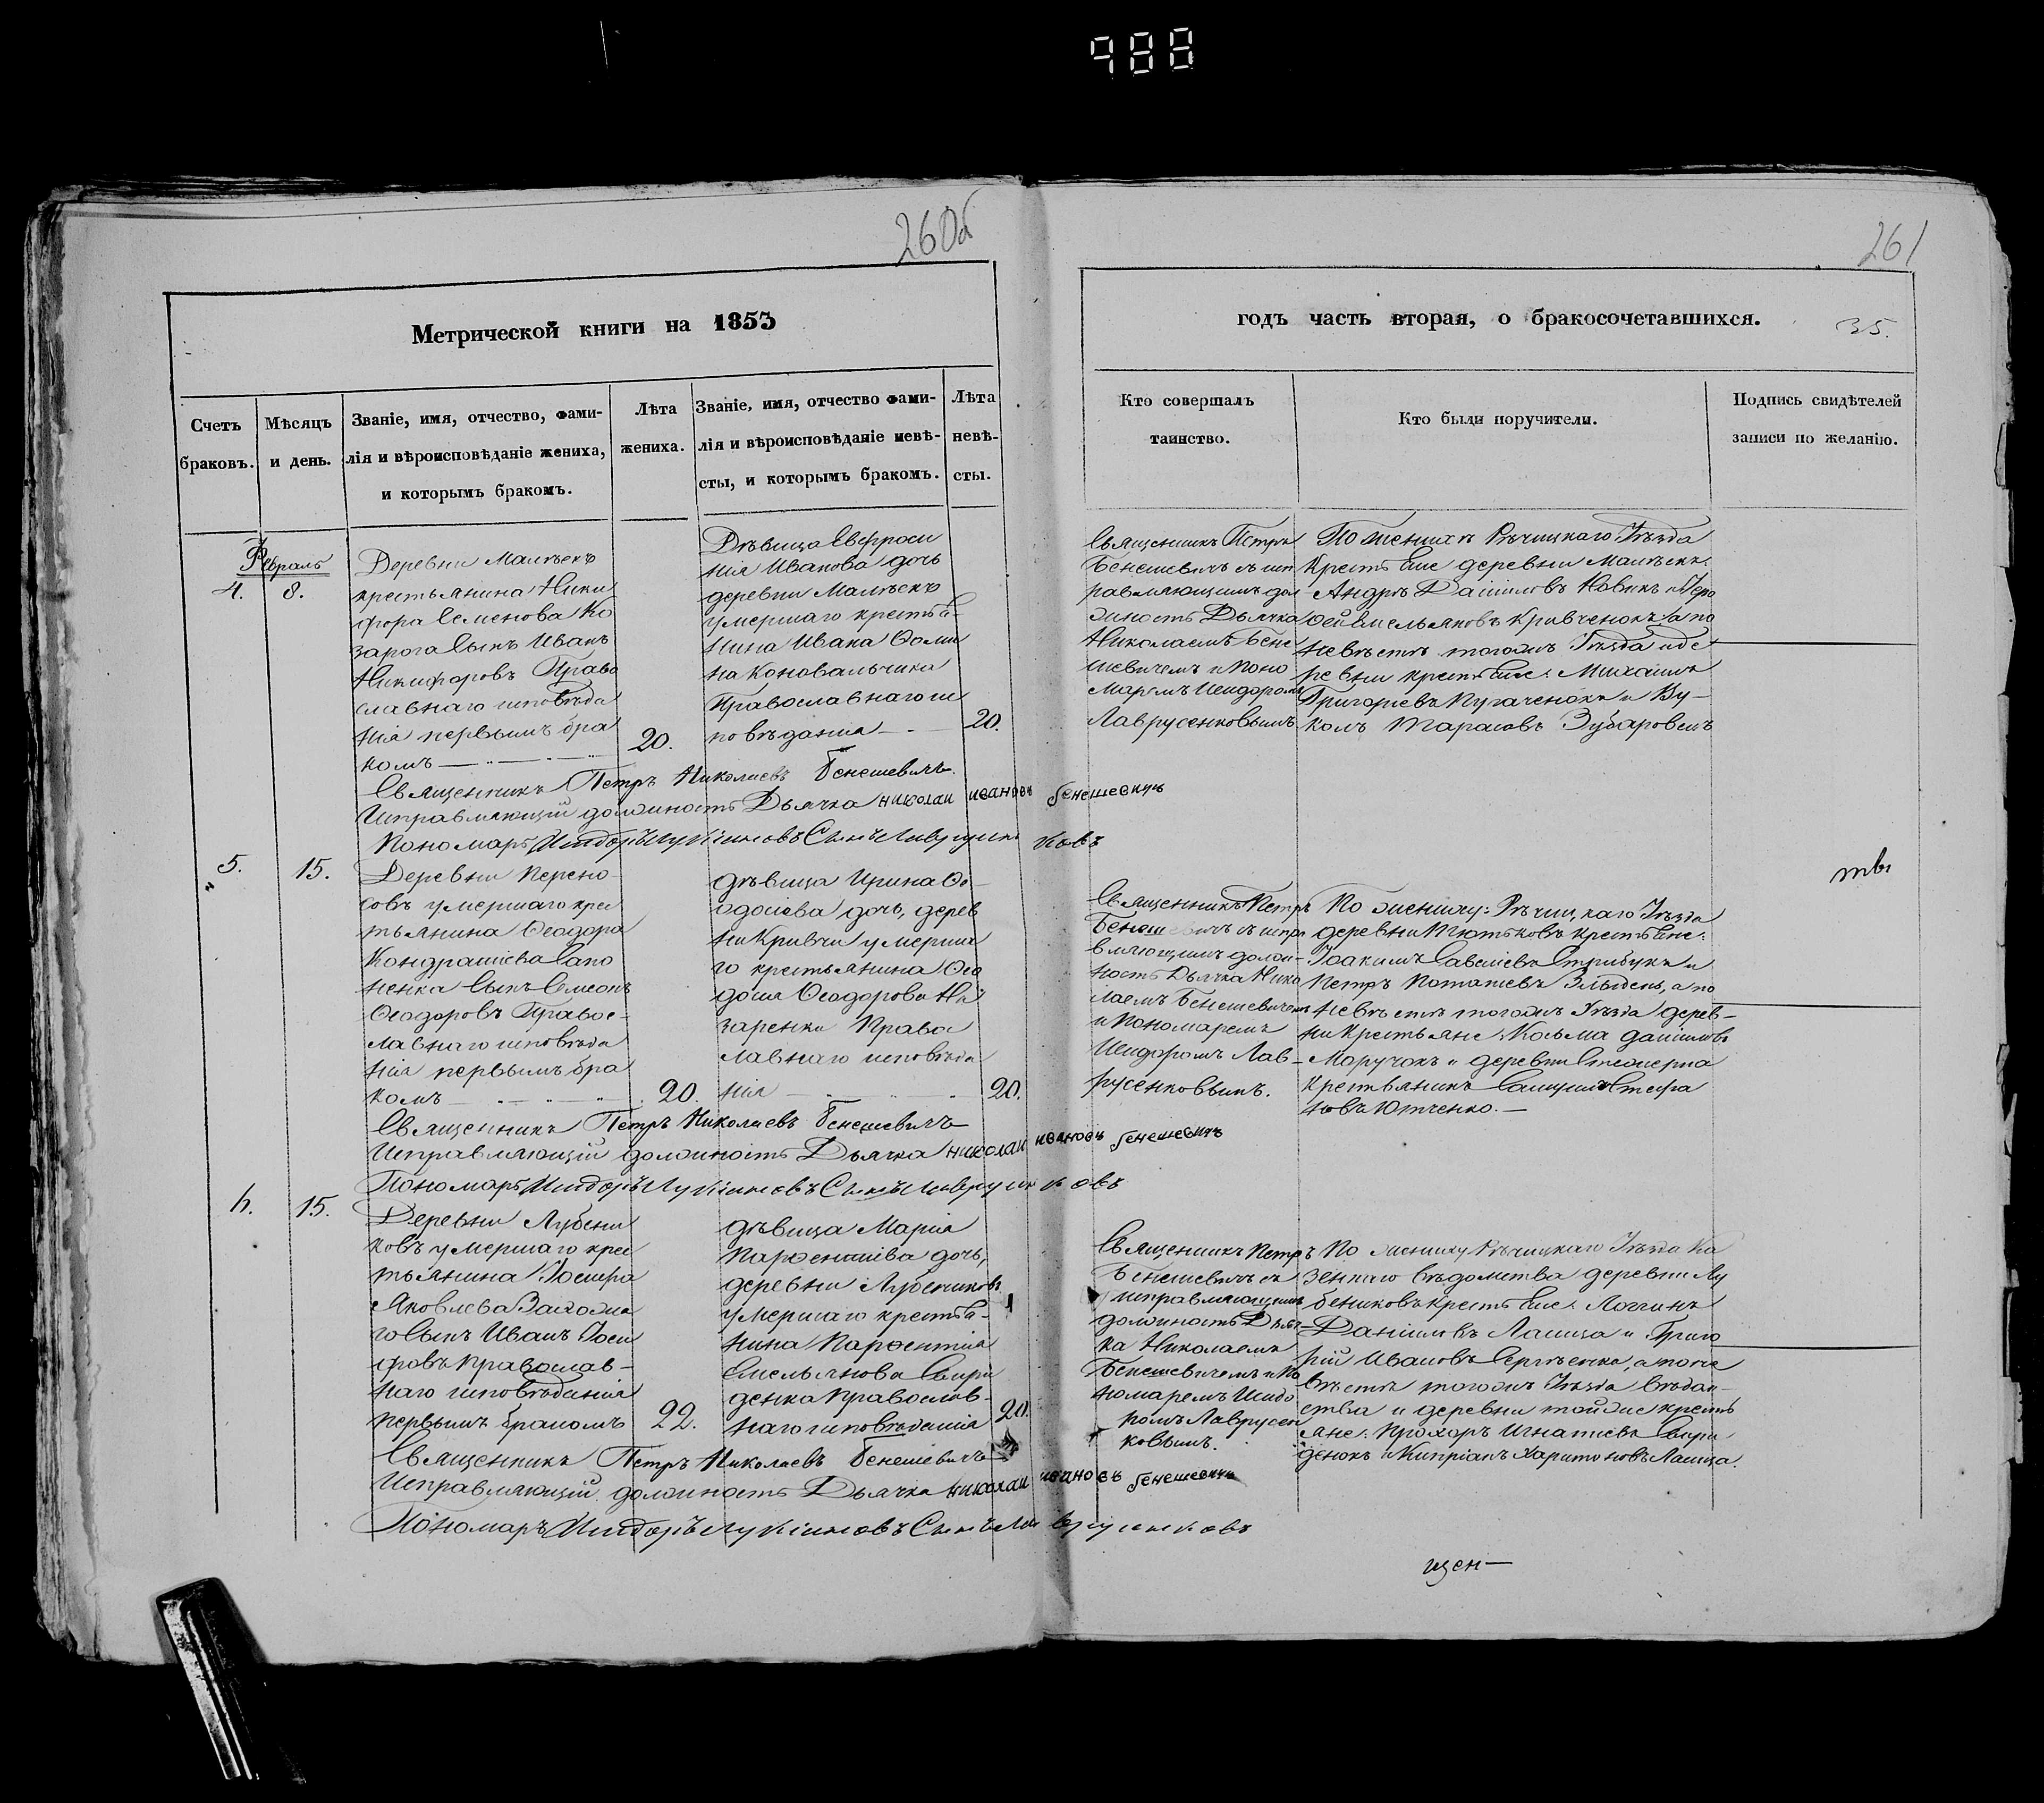 988
260б
261
Метрической книги на 1853
годъ часть вторая, о бракосочетавшихся.
35.
Счетъ
браковъ.
Мѣсяцъ
и день.
Званіе, имя, отчество, фами-
лія и вѣроисповѣданіе жениха,
и которымъ бракомъ.
Лѣта
жениха.
Званіе, имя, отчество фами-
лія и вѣроисповѣданіе невѣ-
сты, и которымъ бракомъ.
Лѣта
невѣ-
сты.
Кто совершалъ
таинство.
Кто были поручители.
Подпись свидѣтелей
записи по желанію.
Февраль
4.
8.
Деревни Малѣекъ
крестьянина Ники
фора Семенова Ко
зарога Сынъ Иванъ
Никифоровъ Право
славнаго исповѣда
нія первымъ бра
комъ
20.
Дѣвица Евфроси
нія Иванова дочь
деревни Малѣекъ
умершаго крестья-
нина Ивана Ѳоми
на Коновальчика
Православнаго ис
повѣданія
20.
Священникъ Петръ
Бенешевичъ съ исп
равляющимъ дол
жность Дьячка
Николаемъ Бене
шевичемъ и Поно
маремъ Исидоромъ
Лаврусенковымъ.
По женихѣ Рѣчицкаго Уѣзда
Крестьяне деревни Малѣекъ.
Андрей Даниловъ Новикъ и
Емельяновъ Кривченокъ, а по
невѣстѣ тогожъ Уѣзда и де
ревни крестьяне: Михаилъ
Григорьевъ Пугаченокъ и Лу-
комъ Тарасовъ Зубаровемъ
Священникъ Петръ Николаевъ Бенешевичъ
Исправляющій должность Дьячка Николай Ивановъ Бенешевичъ
Пономарь Исидоръ Лукіановъ Сынъ Лаврусенковъ
5.
15.
Деревни Перено
совъ умершаго крес
тьянина Ѳеодора
Кондратіева Сапо
ненка Сынъ Семеонъ
Ѳеодоровъ Правос-
лавнаго исповѣда
нія первымъ бра
комъ
20.
дѣвица Ирина Ѳе-
одосіева дочь, дерев
ни Кривчи умерша
го крестьянина Ѳео
досія Ѳеодорова На
заренки Право
славнаго исповѣда
нія
20.
Священникъ Петръ
Бенешевичъ съ испра
вляющимъ долж-
ность Дьячка Нико
лаемъ Бенешевичемъ
и Пономаремъ
Исидоромъ Лав-
русенковымъ.
По жениху: Рѣчицкаго Уѣзда
деревни Тютьковъ крестьяне:
Іоакимъ Савеліевъ Стрибукъ и
Петръ Потапіевъ Злыдень, а по
невѣстѣ тогожъ Уѣзда дерев-
ни Крестьяне: Козьма Даниловъ
Маручокъ и деревни
Крестьянинъ Стефа
новъ Ютченко.
ты
Священникъ Петръ Николаевъ Бенешевичъ
Исправляющій должность Дьячка Николай Ивановъ Бенешевичъ
Пономарь Исидоръ Лукіановъ Сынъ Лаврусенковъ
6.
15.
Деревни Лубени
ковъ умершаго крес
тьянина Іосифа
Яковлева Захожа
го Сынъ Иванъ Іоси
фовъ Православ-
наго исповѣданія
первымъ бракомъ
22.
дѣвица Марія
Парѳентіева дочь,
деревни Лубениковъ
умершаго крестья-
нина Парѳентія
Емельянова Свири
денка Православ-
наго исповѣданія
20.
Священникъ Петръ
Бенешевичъ съ
исправляющимъ
должность Дьяч-
ка Николаемъ
Бенешевичемъ и По
номаремъ Исидо
ромъ Лаврусен
ковымъ.
По жениху Рѣчицкаго Уѣзда Ка
зеннаго вѣдомства деревни Лу
бениковъ крестьяне: Логгинъ
Даніиловъ Лашица и Григо
рій Ивановъ Сергѣенко, а по не
вѣстѣ тогожъ Уѣзда вѣдом-
ства и деревни тойже кресть
яне: Прохоръ Игнатіевъ Свири
денокъ и Кипріанъ Харитоновъ Лашица.
Священникъ Петръ Николаевъ Бенешевичъ
Исправляющій должность Дьячка Николай Ивановъ Бенешевичъ
Пономарь Исидоръ Лукіановъ Сынъ Лаврусенковъ
щен-